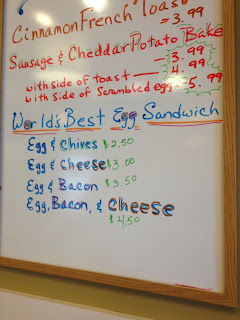 Cinnamon French Toast
= 3.99
Sausage & Cheddar Potato Bake
- 3.99
with side of toast — 4.99
with Side of Scrambled egg - 5.99
World's Best Egg Sandwich
Egg & Chives $2.50
Egg & Cheese $3.00
Egg & Bacon $3.50
Egg, Bacon, & Cheese
$4.50